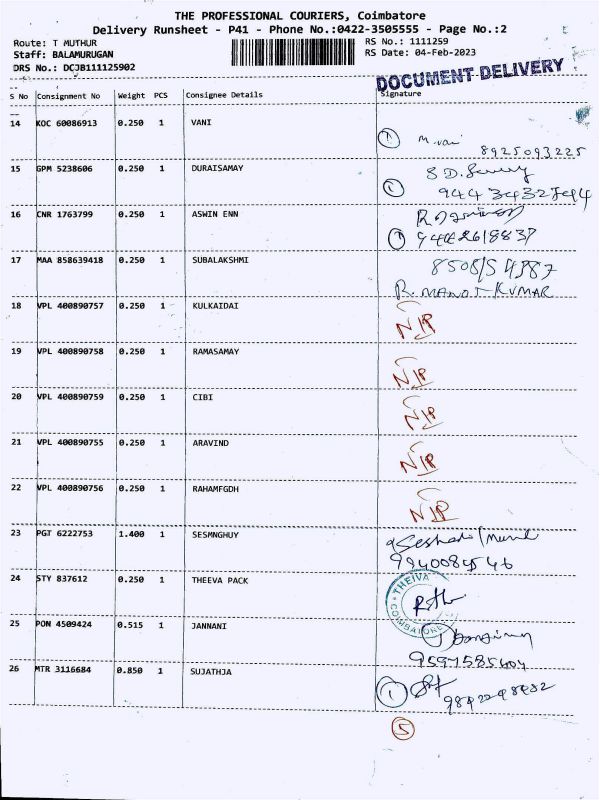 THE PROFESSIONAL COURIERS, Coimbatore
Delivery Runsheet - P41 - Phone No.:0422-3505555 - Page No.:2
Route: T MUTHUR
RS No.: 1111259
Staff: BALAMURUGAN
RS Date: 04-Feb-2023
DRS No.: DCJB111125902
DOCUMENT DELIVERY
S No Consignment No Weight PCS Consignee Details Signature
14 KOC 60086913 0.250 1 VANI
8925093225
15 GPM 5238606 0.250 1 DURAISAMAY
16 CNR 1763799 0.250 1 ASWIN ENN
9442618837
17 MAA 858639418 0.250 1 SUBALAKSHMI
R. MANOJ KUMAR
18 VPL 400890757 0.250 1 KULKAIDAI
N/P
19 VPL 400890758 0.250 1 RAMASAMAY
N/P
20 VPL 400890759 0.250 1 CIBI
N/P
21 VPL 400890755 0.250 1 ARAVIND
N/P
22 VPL 400890756 0.250 1 RAHAMFGDH
N/P
23 PGT 6222753 1.400 1 SESMNGHUY
24 STY 837612 0.250 1 THEEVA PACK
THEIVA
COIMBATORE
25 PON 4509424 0.515 1 JANNANI
26 MTR 3116684 0.850 1 SUJATHJA
5